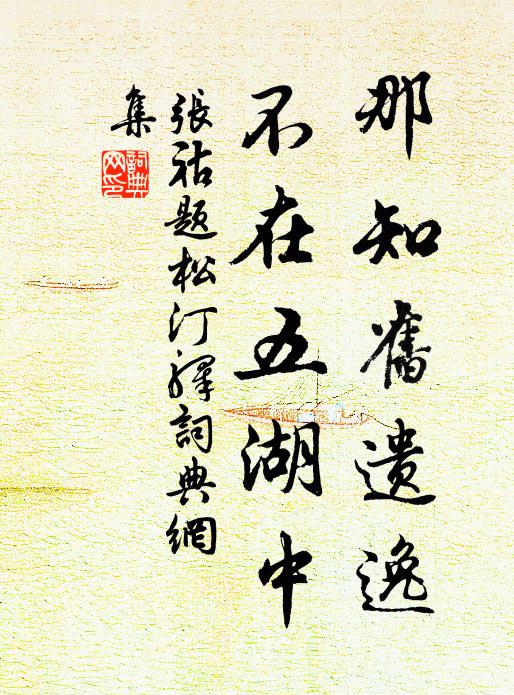 那知舊遺逸
不在五湖中
張祜題松汀驛詞典網
集
詞典網印